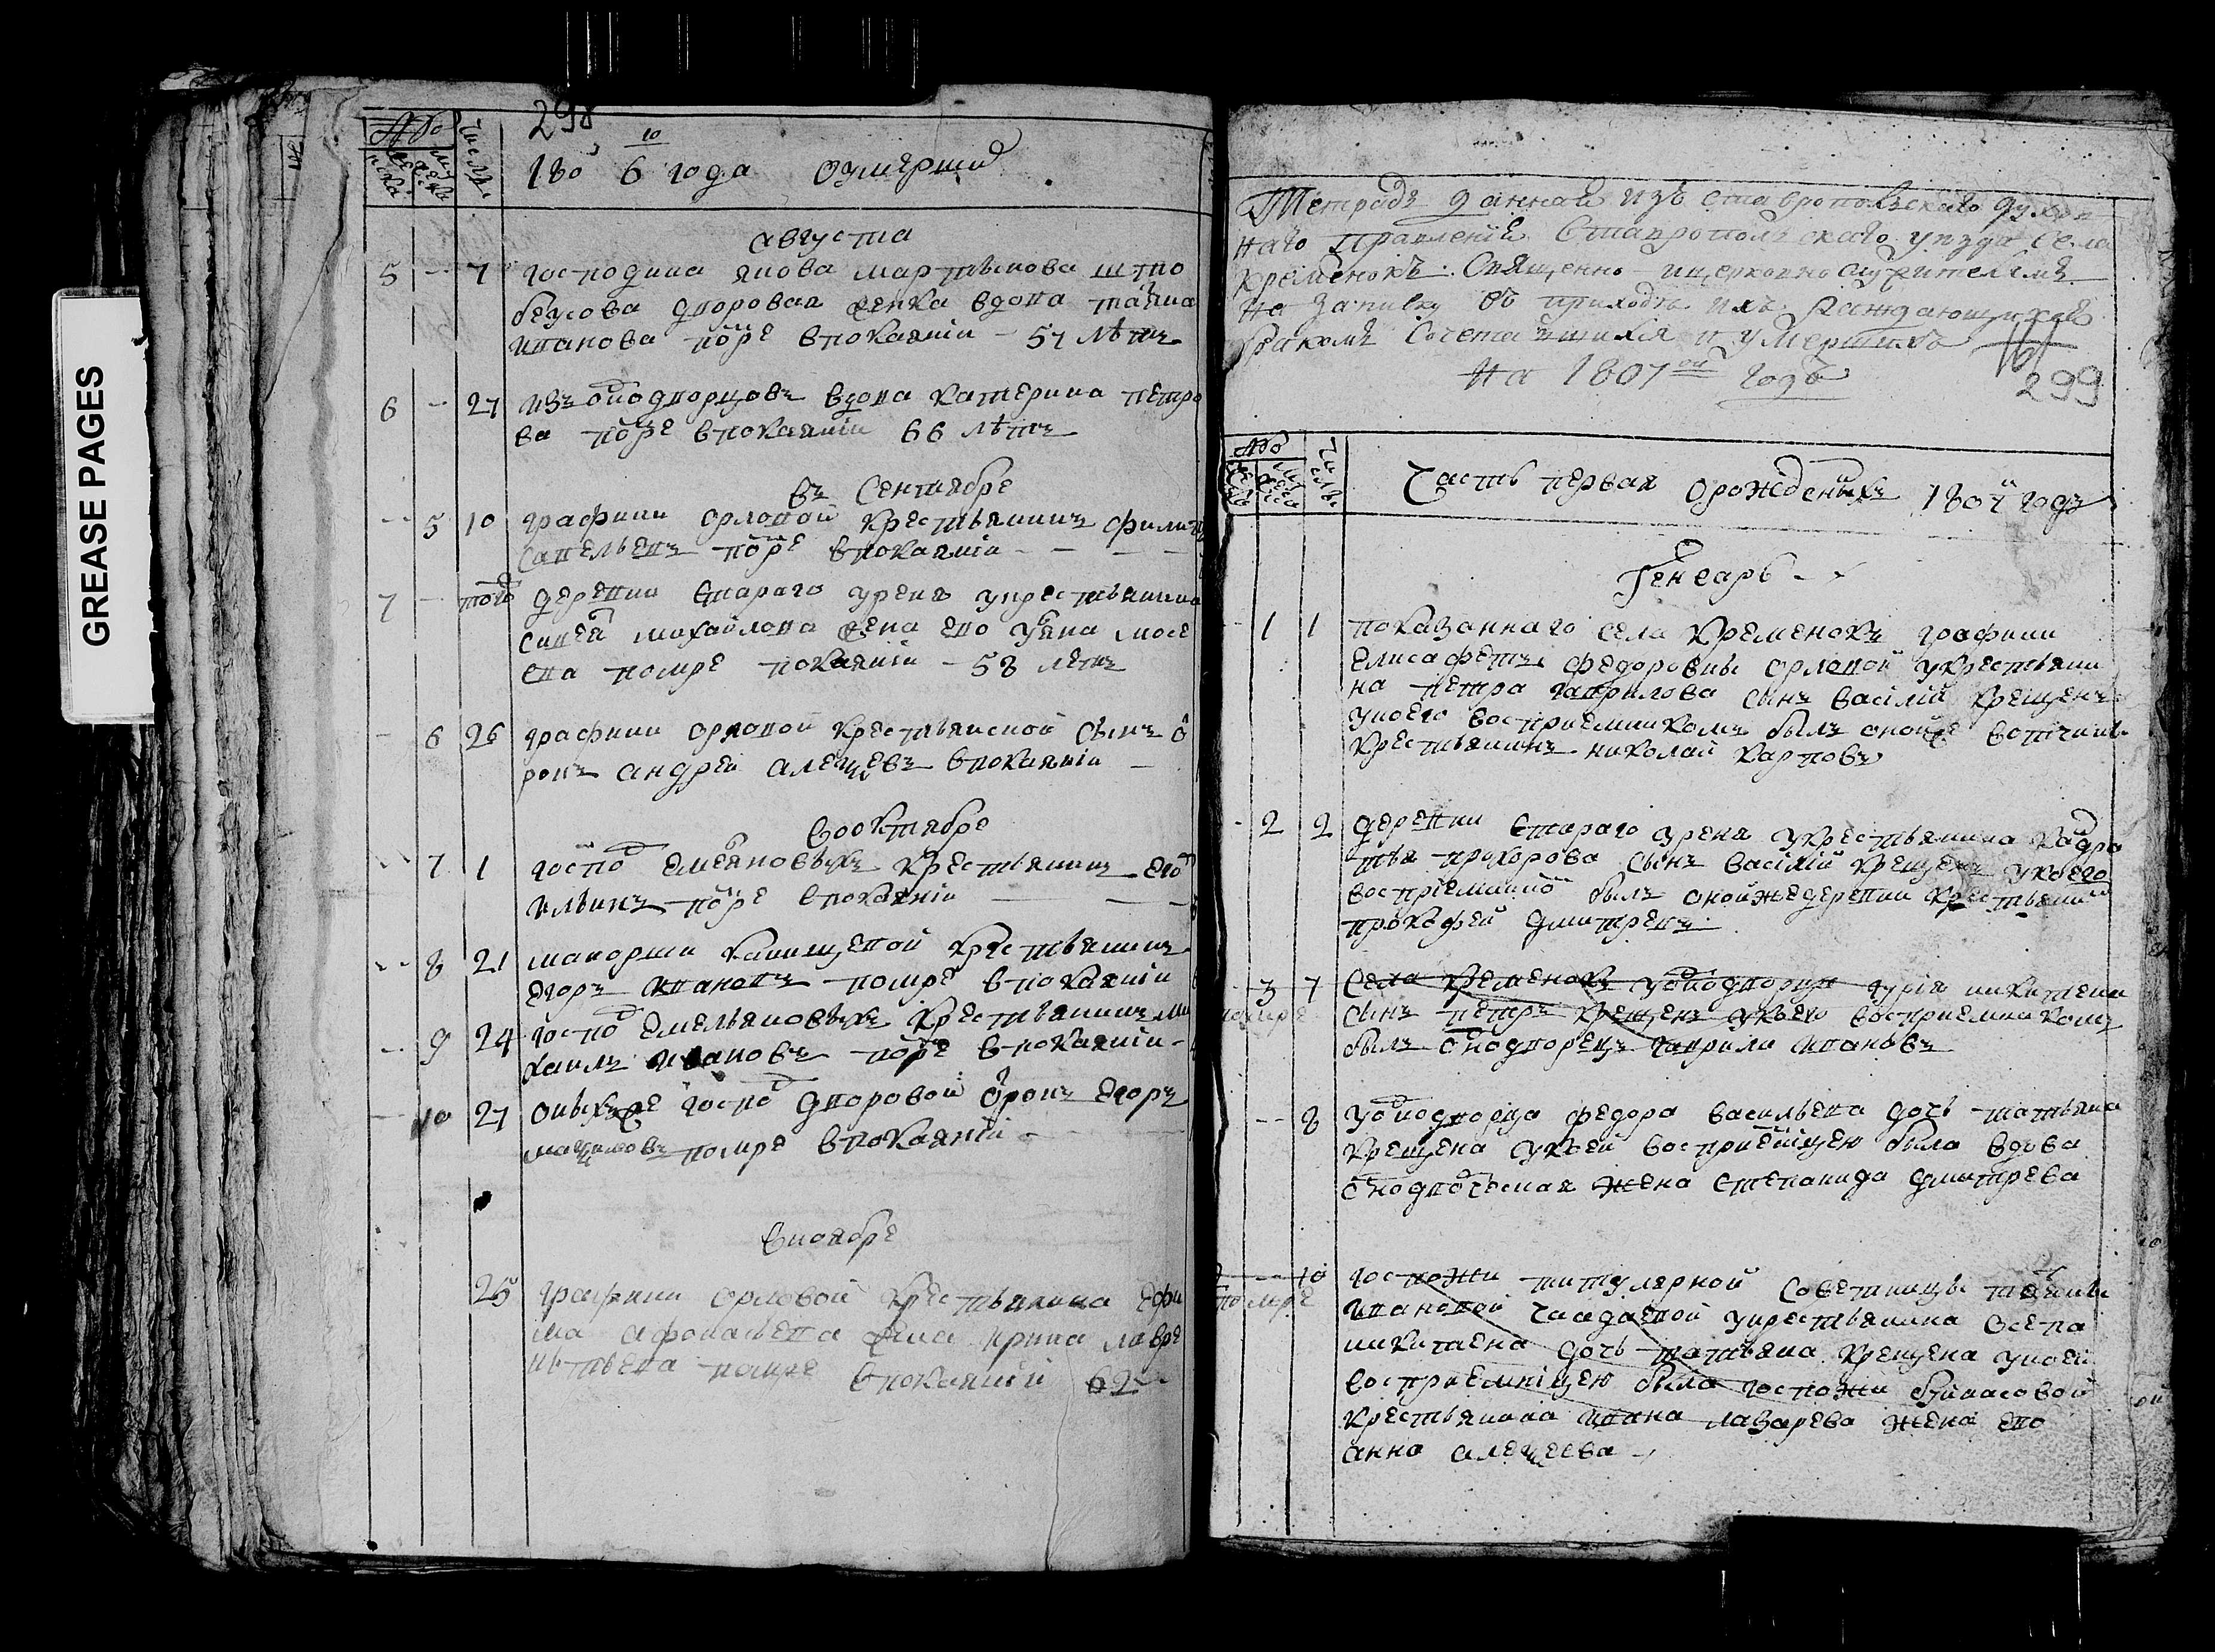 GREASE PAGES
298
10
1806 года оумерших
августа
5 - 7 господина якова мартынова што
беусова дворовая женка вдова татиа
иванова помре впокаяніи - 57 лѣтъ
6 - 27 изъ однодворцовъ вдова катерина петро
ва помре впокаяніи 66 лѣтъ
въ Сентябре
5 10 графини орловой крестьянинъ филип
савельевъ помре впокаяніи
7 - того деревни Стараго урения укрестьянина
михайлова жена его
ева помре покаяніи - 58 летъ
6 26 графини орловой крестьянской Сынъ о
рокъ андреи алеѯѣевъ впокаяніи
Вооктябре
7 1 господ Емельяновыхъ крестьянинъ
ильинъ помре впокаяніи
8 21 маиорши крестьянинъ
Егоръ ивановъ помре впокаяніи
9 24 господ Емельяновыхъ крестьянинъ ми
хаилъ ивановъ помре впокаяніи
10 27 оныхъже господ дворовой отрокъ Егоръ
маѯимовъ помре впокаяніи
Вноябре
25 графини орловой крестьянина Ефи
ма афонасьева жена ирина лавре
нтьева помре впокаяніи 62
Тетрадь данная изъ Ставропольскаго духов
наго правления Ставропольскаго уезда Села
Кременокъ Священно-ицерковнослужителямъ
На записку въ приходе ихъ Раждающихся
бракомъ Сочетавшихся и умершихъ
На 1807ой годъ
299
Часть первая орожденыхъ 1807 годъ
Генварь
1 1 показаннаго села Кременокъ графини
Елисафетъ федоровны орловой укрестьяни
на петра гаврилова сынъ василій крещенъ
укоего восприемникомъ былъ онойже вотчины
крестьянинъ николай карповъ
2 2 деревни Стараго урения укрестьянина кодра
тья прохорова сынъ василій крещенъ укоего
восприемнико былъ онойжедеревни крестьяни
прокофей дмитревъ
3 7 Села Кременокъ уоднодворца гурія никитена
помре сынъ петръ крещенъ укоего восприемникомъ
былъ однодворецъ гаврила ивановъ
- - 8 уоднодворца федора васильева дочь татьяна
крещена укоей восприемницею была вдова
жена степанида дмитрева
- - 10 госпожи титулярной Советницы татьяны
помре ивановой Чаадаевой укрестьянина осепа
никитаева дочь татьяна крещена укоей
восприемніцею была госпожи
крестьянина ивана лазарева жена его
анна алеѯеева